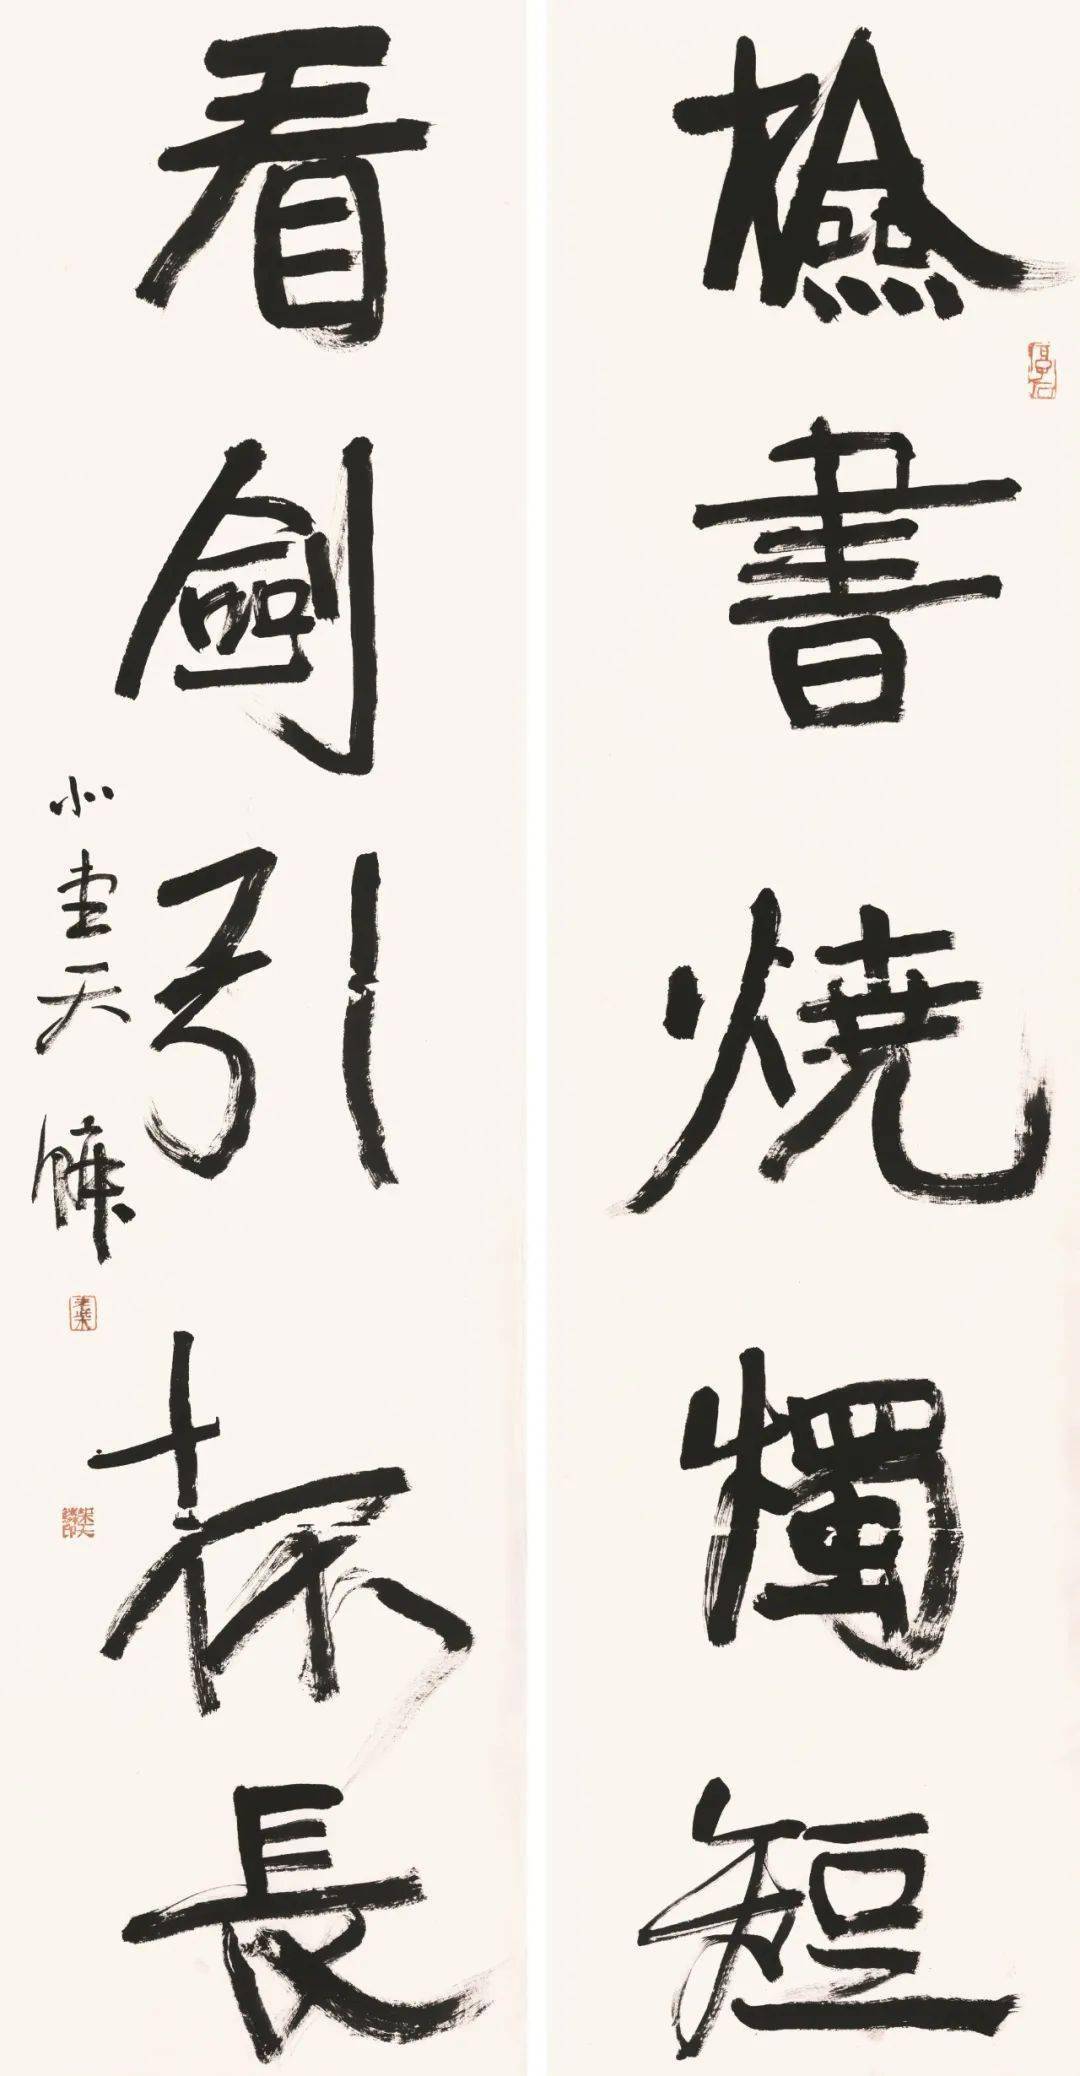 檢書燒燭短
看劍引杯長
小畫天